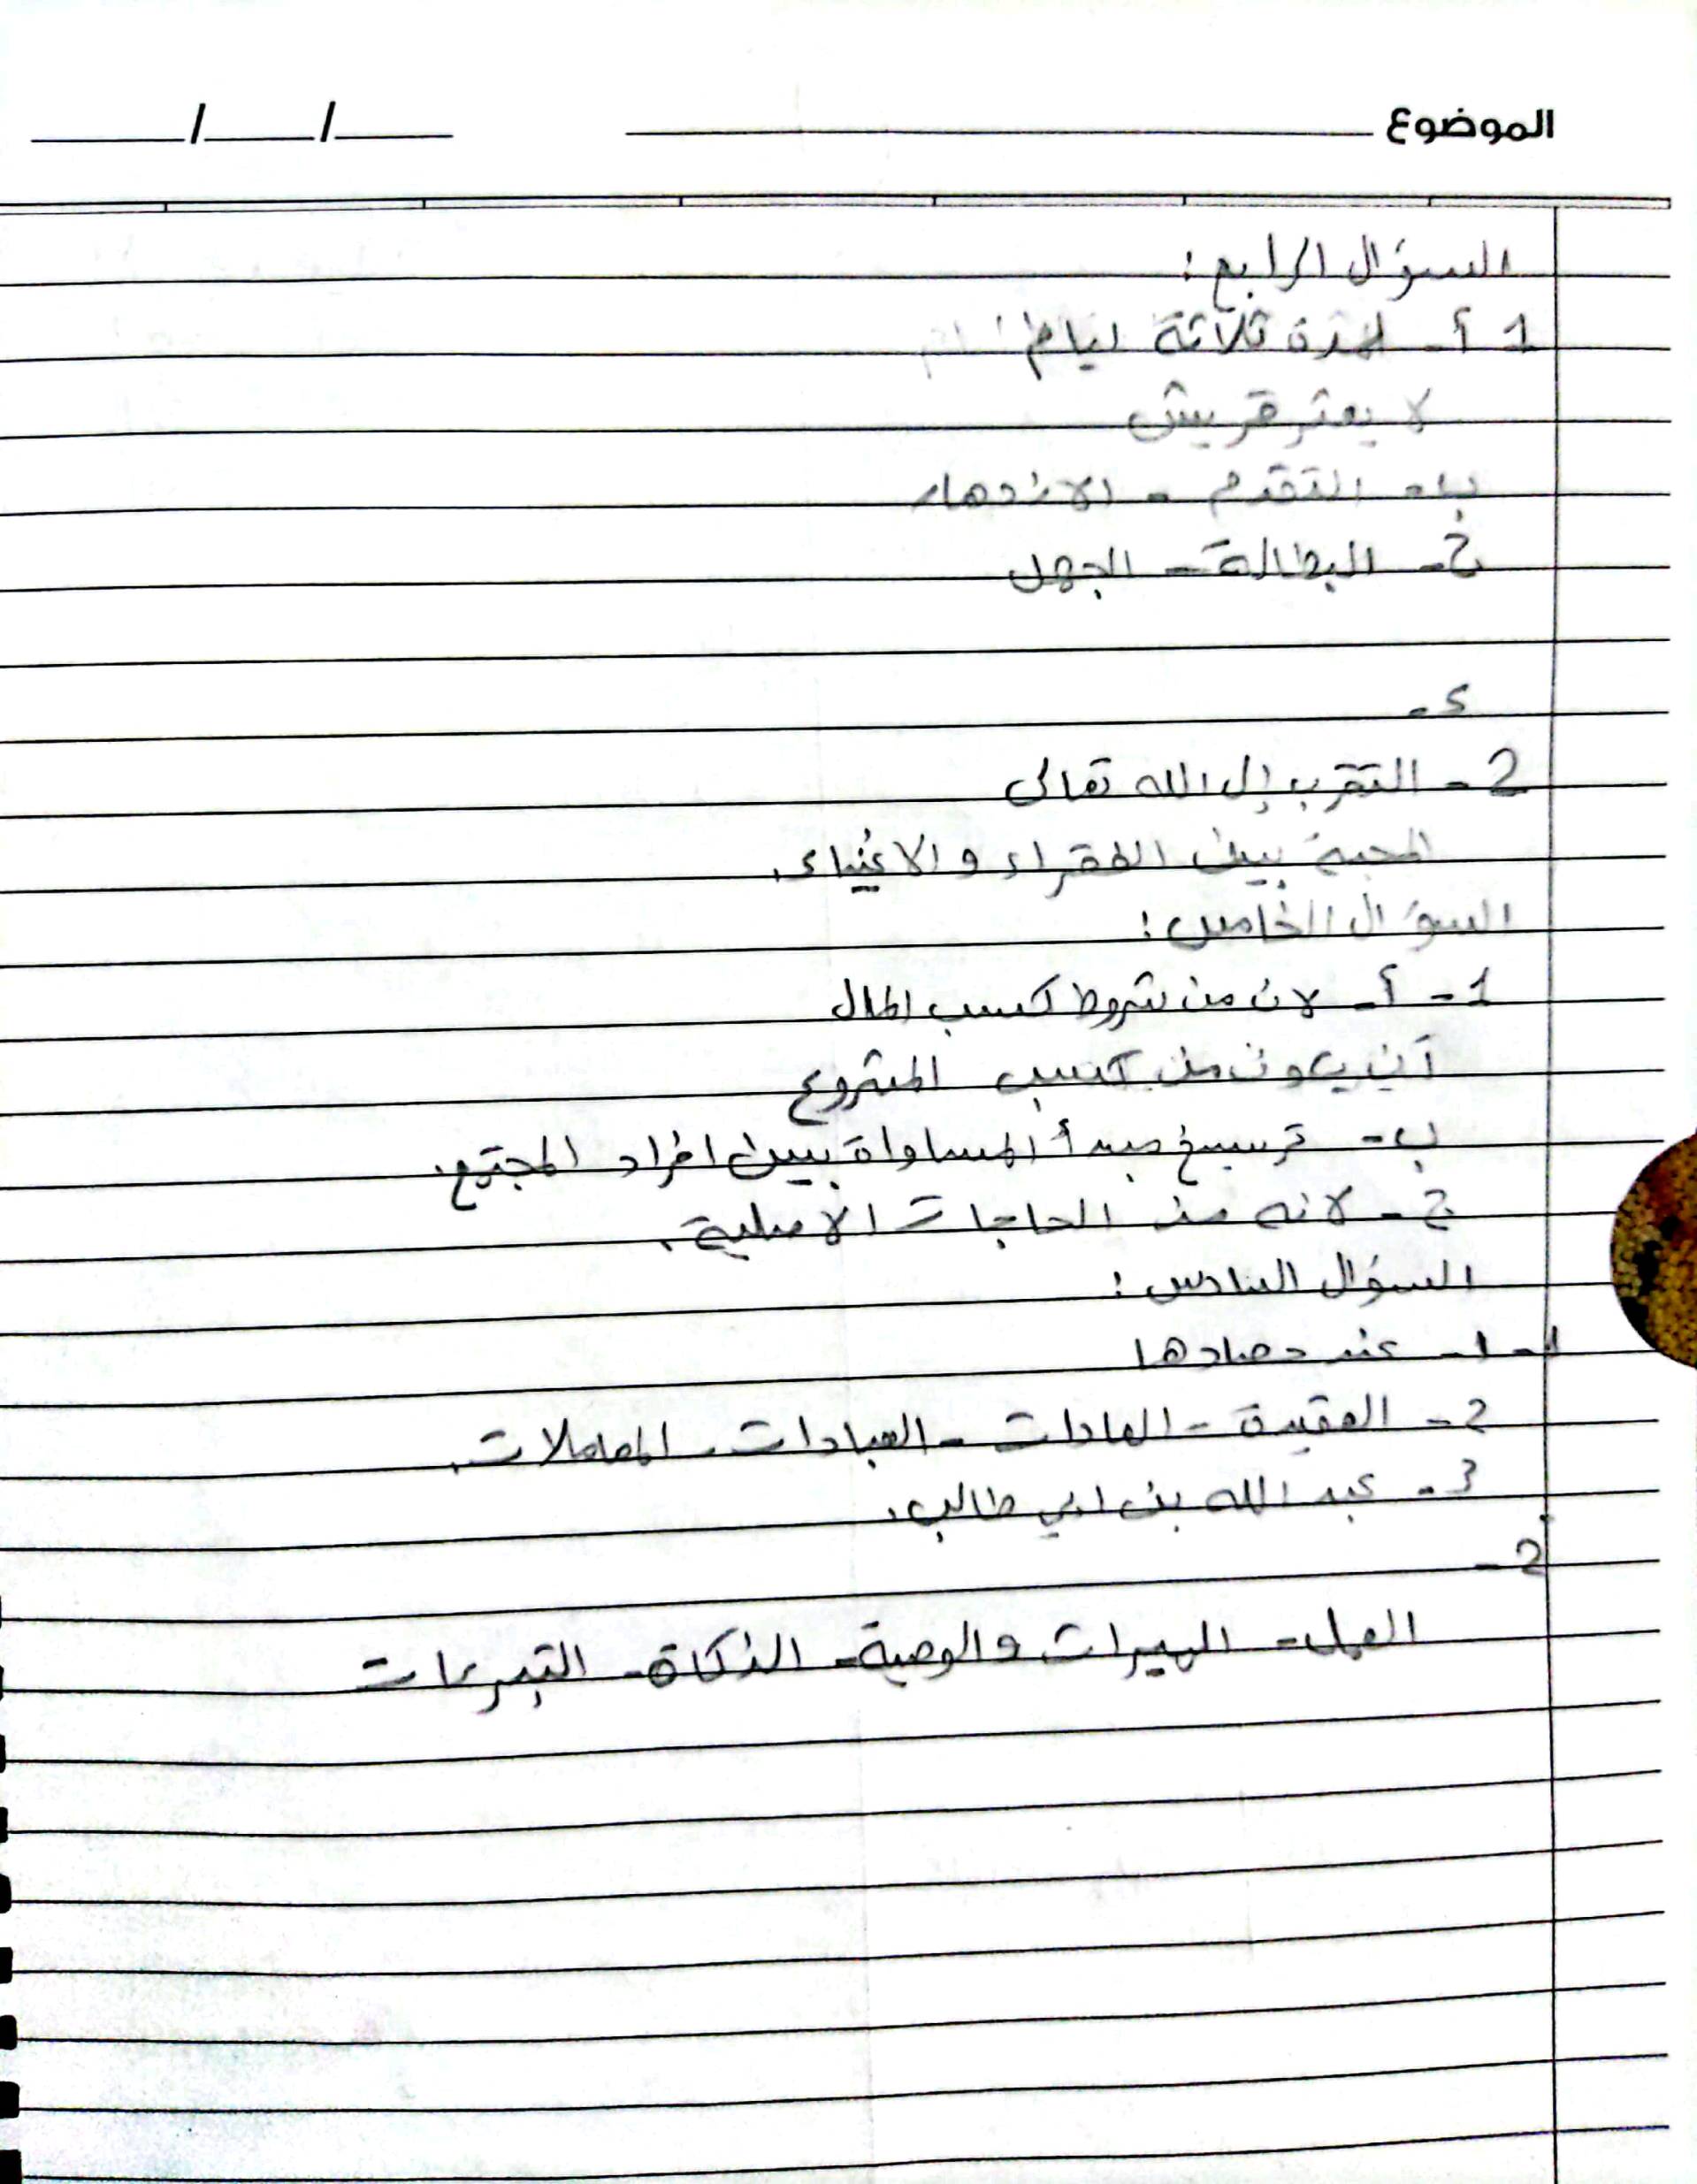 الموضوع / /
السؤال الرابع :
1 أ - لمدة ثلاثة ايام
لا يعثر قريش
ب - التقدم - الازدهار
ج - البطالة - الجهل
د -
2 - التقرب إلى الله تعالى
المحبة بين الفقراء و الاغنياء .
السؤال الخامس :
1 - أ - لان من شروط كسب المال
أن يكون من كسب المشروع
ب - ترسيخ مبدأ المساواة بين افراد المجتمع .
ج - لانه من الحاجات الاصلية .
السؤال السادس :
1 - 1 - عند حصادها
2 - العقيدة - العادات - العبادات - المعاملات .
3 - عبد الله بن ابي طالب .
2 -
العمل - الميراث والوصية - الزكاة - التبرعات